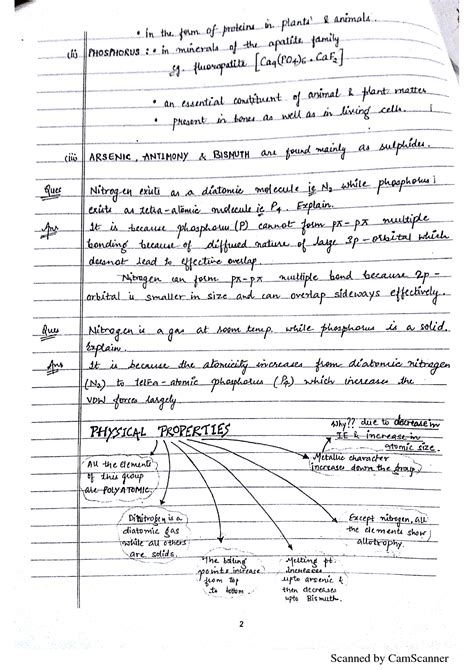 • in the form of proteins in plants & animals.
(ii) PHOSPHORUS : • in minerals of the apatite family
eg. fluorapatite [Ca9(PO4)6 . CaF2]
• an essential constituent of animal & plant matter
• present in bones as well as in living cells.
(iii) ARSENIC, ANTIMONY & BISMUTH are found mainly as sulphides.
Ques Nitrogen exists as a diatomic molecule ie N2 while phosphorus
exists as tetra-atomic molecule ie P4. Explain.
Ans It is because phosphorus (P) cannot form pπ-pπ multiple
bonding because of diffused nature of large 3p-orbital which
doesnot lead to effective overlap.
Nitrogen can form pπ-pπ multiple bond because 2p-
orbital is smaller in size and can overlap sideways effectively.
Ques Nitrogen is a gas at room temp. while phosphorus is a solid.
Explain.
Ans It is because the atomicity increases from diatomic nitrogen
(N2) to tetra-atomic phosphorus (P4) which increases the
VDW forces largely.
PHYSICAL PROPERTIES
Why?? due to decrease in
IE & increase in
atomic size.
Metallic character
increases down the group.
All the elements
of this group
are POLYATOMIC.
Dinitrogen is a
diatomic gas
while all others
are solids.
The boiling
points increase
from top
to bottom.
Melting pt.
increases
upto arsenic &
then decreases
upto Bismuth.
Except nitrogen, all
the elements show
allotrophy.
2
Scanned by CamScanner